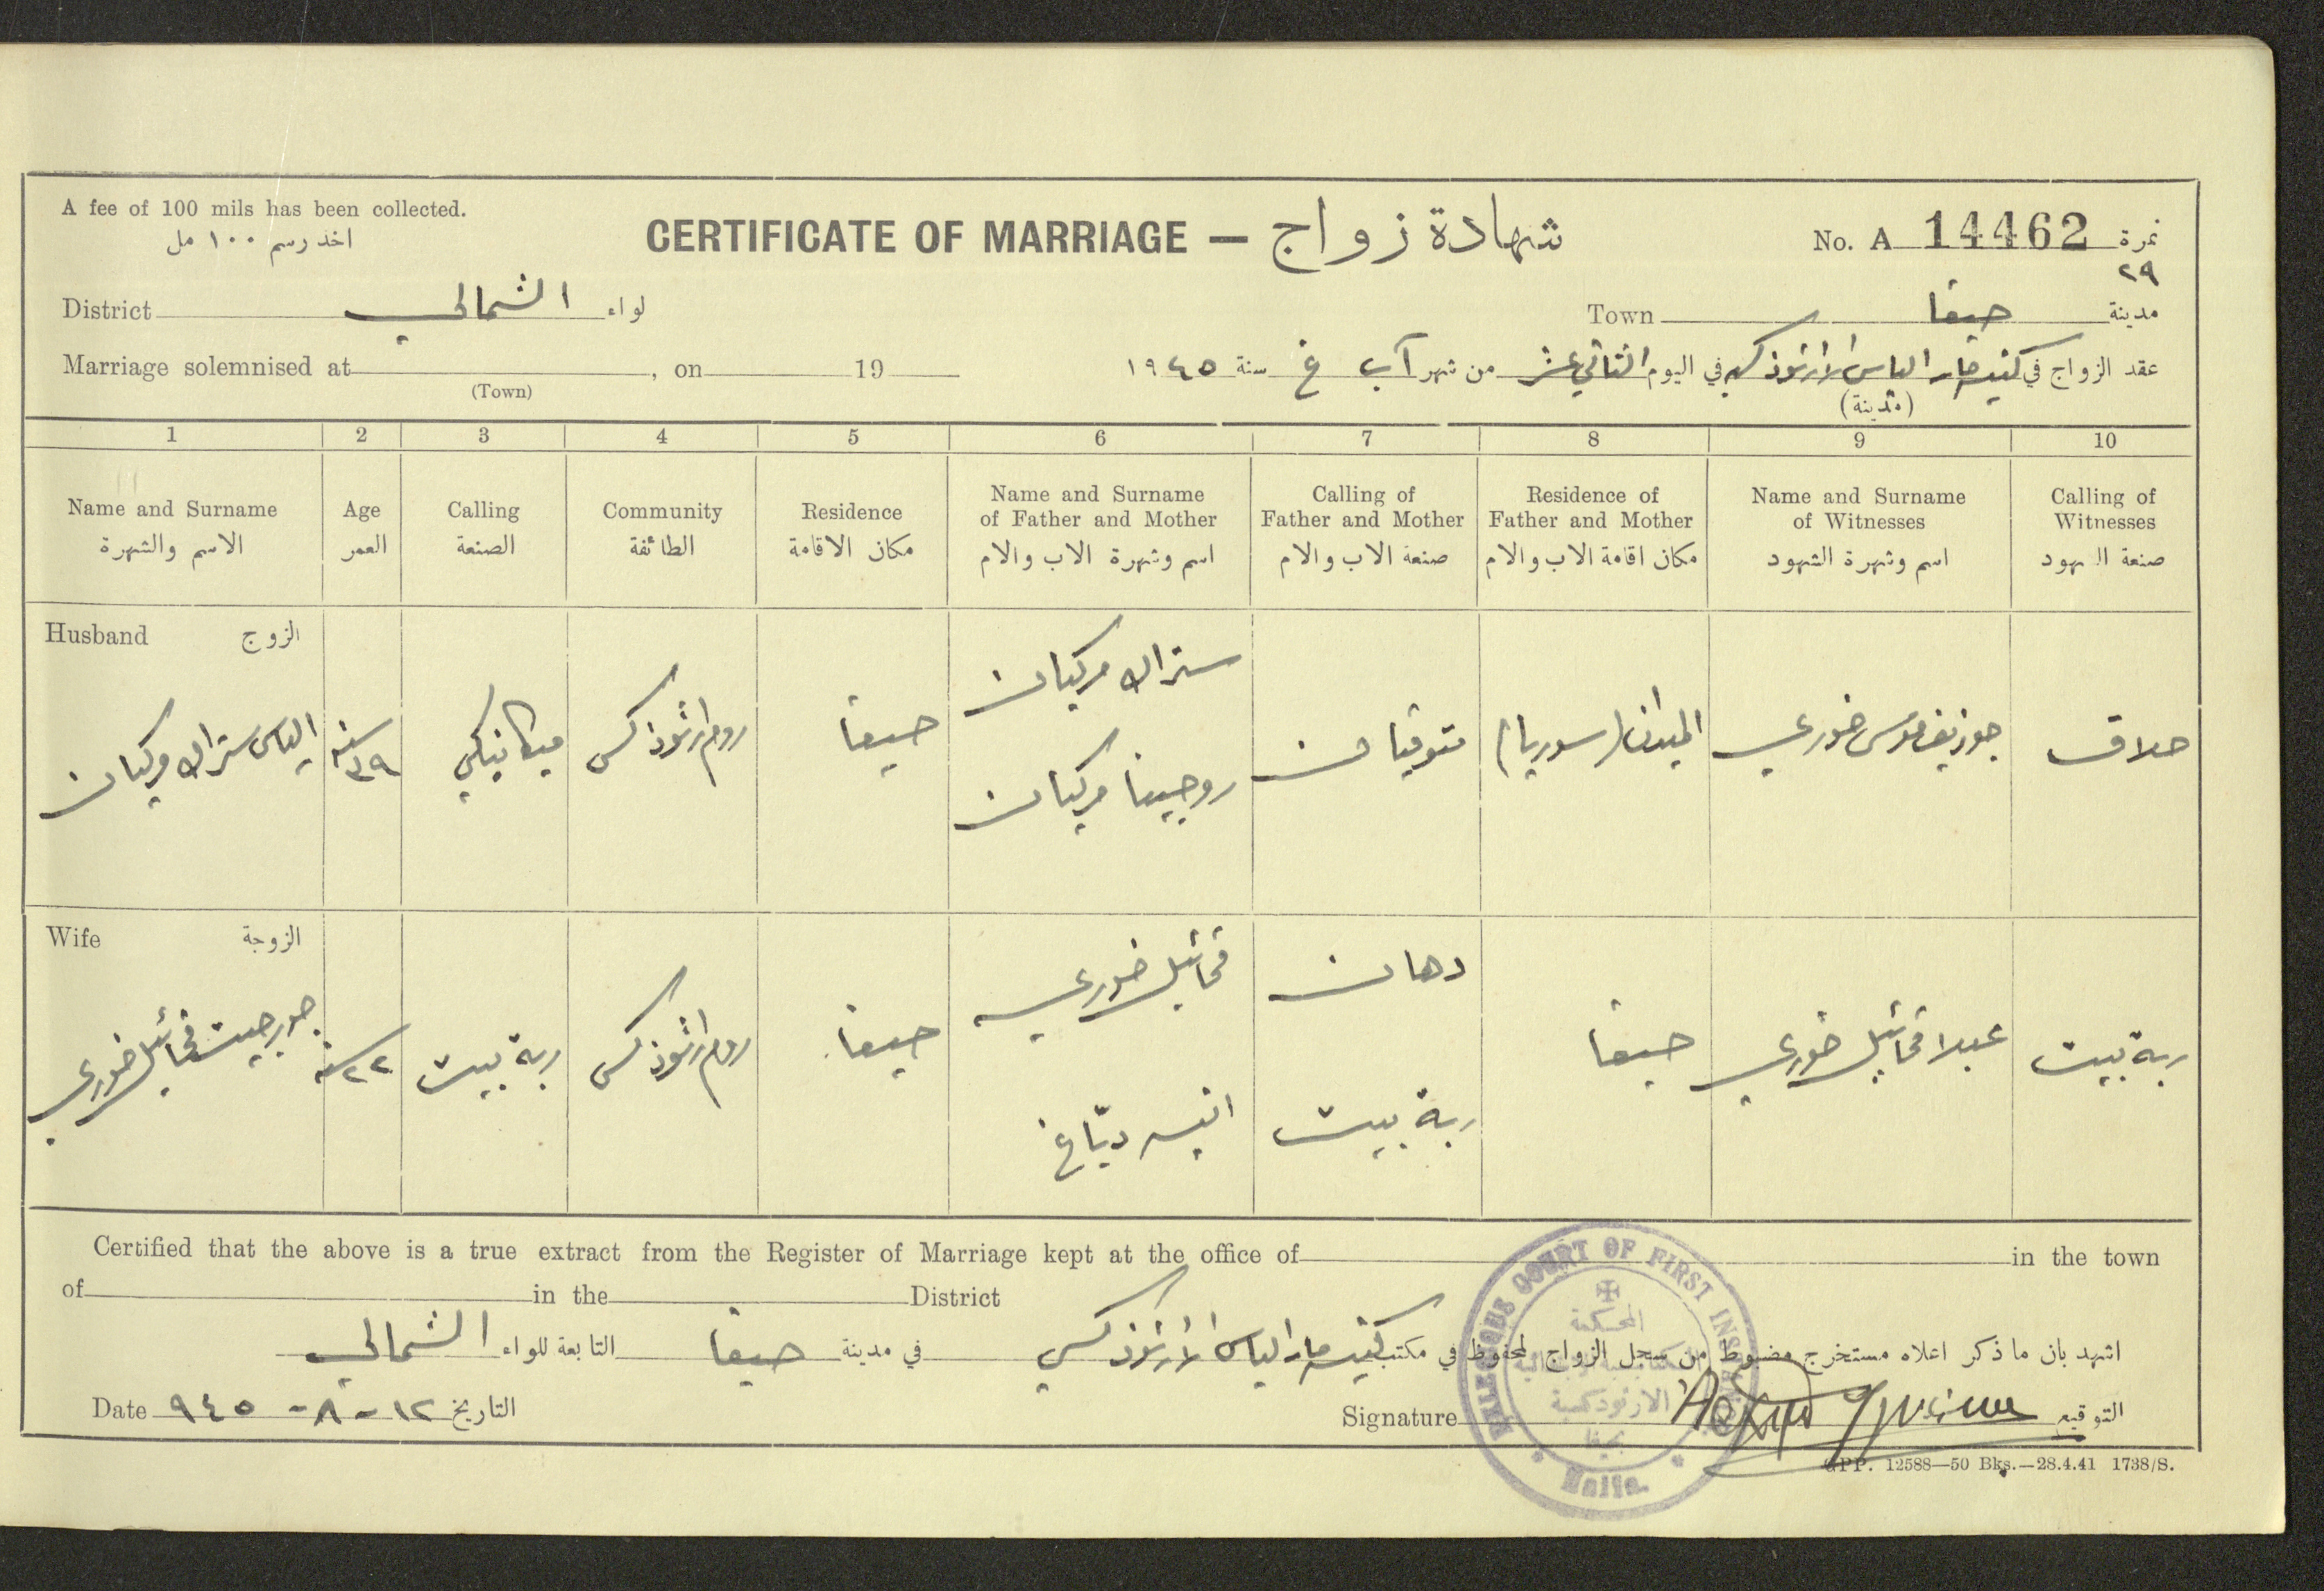 A fee of 100 mils has been collected.
اخذ رسم ١٠٠ مل
CERTIFICATE OF MARRIAGE — شهادة زواج
No. A 14462 نمرة
٢٩
District الشمالي لواء
Town حيفا مدينة
Marriage solemnised at , on 19
(Town)
عقد الزواج في كنيسة مار الياس الارثوذكسية في اليوم الثاني عشر من شهر آب غ سنة ١٩٤٥
(مدينة)
1 2 3 4 5 6 7 8 9 10
Name and Surname
الاسم والشهرة
Age
العمر
Calling
الصنعة
Community
الطائفة
Residence
مكان الاقامة
Name and Surname
of Father and Mother
اسم وشهرة الاب والام
Calling of
Father and Mother
صنعة الاب والام
Residence of
Father and Mother
مكان اقامة الاب والام
Name and Surname
of Witnesses
اسم وشهرة الشهود
Calling of
Witnesses
صنعة الشهود
Husband الزوج
الياس ستراك مركيان
٣٩ سنه
ميكانيكي
روم ارثوذكس
حيفا
ستراك مركيان
روجينا مركيان
متوفيان
الميدان (سوريا)
جوزيف موسى خوري
حلاق
Wife الزوجة
جورجيت مخائيل خوري
٢٢ سنه
ربة بيت
روم ارثوذكس
حيفا
مخائيل خوري
انيسه دبّاغ
دهان
ربة بيت
حيفا
عبلا مخائيل خوري
ربة بيت
Certified that the above is a true extract from the Register of Marriage kept at the office of in the town
of in the District
اشهد بان ما ذكر اعلاه مستخرج مضبوط من سجل الزواج المحفوظ في مكتب كنيسة مار الياس الارثوذكسي في مدينة حيفا التابعة للواء الشمالي
Date ١٢ - ٨ - ٩٤٥ التاريخ
Signature التوقيع
GPP. 12588—50 Bks.—28.4.41 1738/S.
COURT OF FIRST
المحكمة
الارثوذكسية
بحيفا
Haifa.